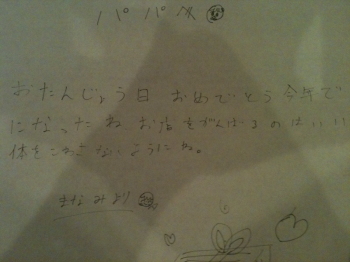 パパへ
おたんじょう日 おめでとう 今年で
になったね お店をがんばるのはいい
体をこわさないようにね。
まなみより